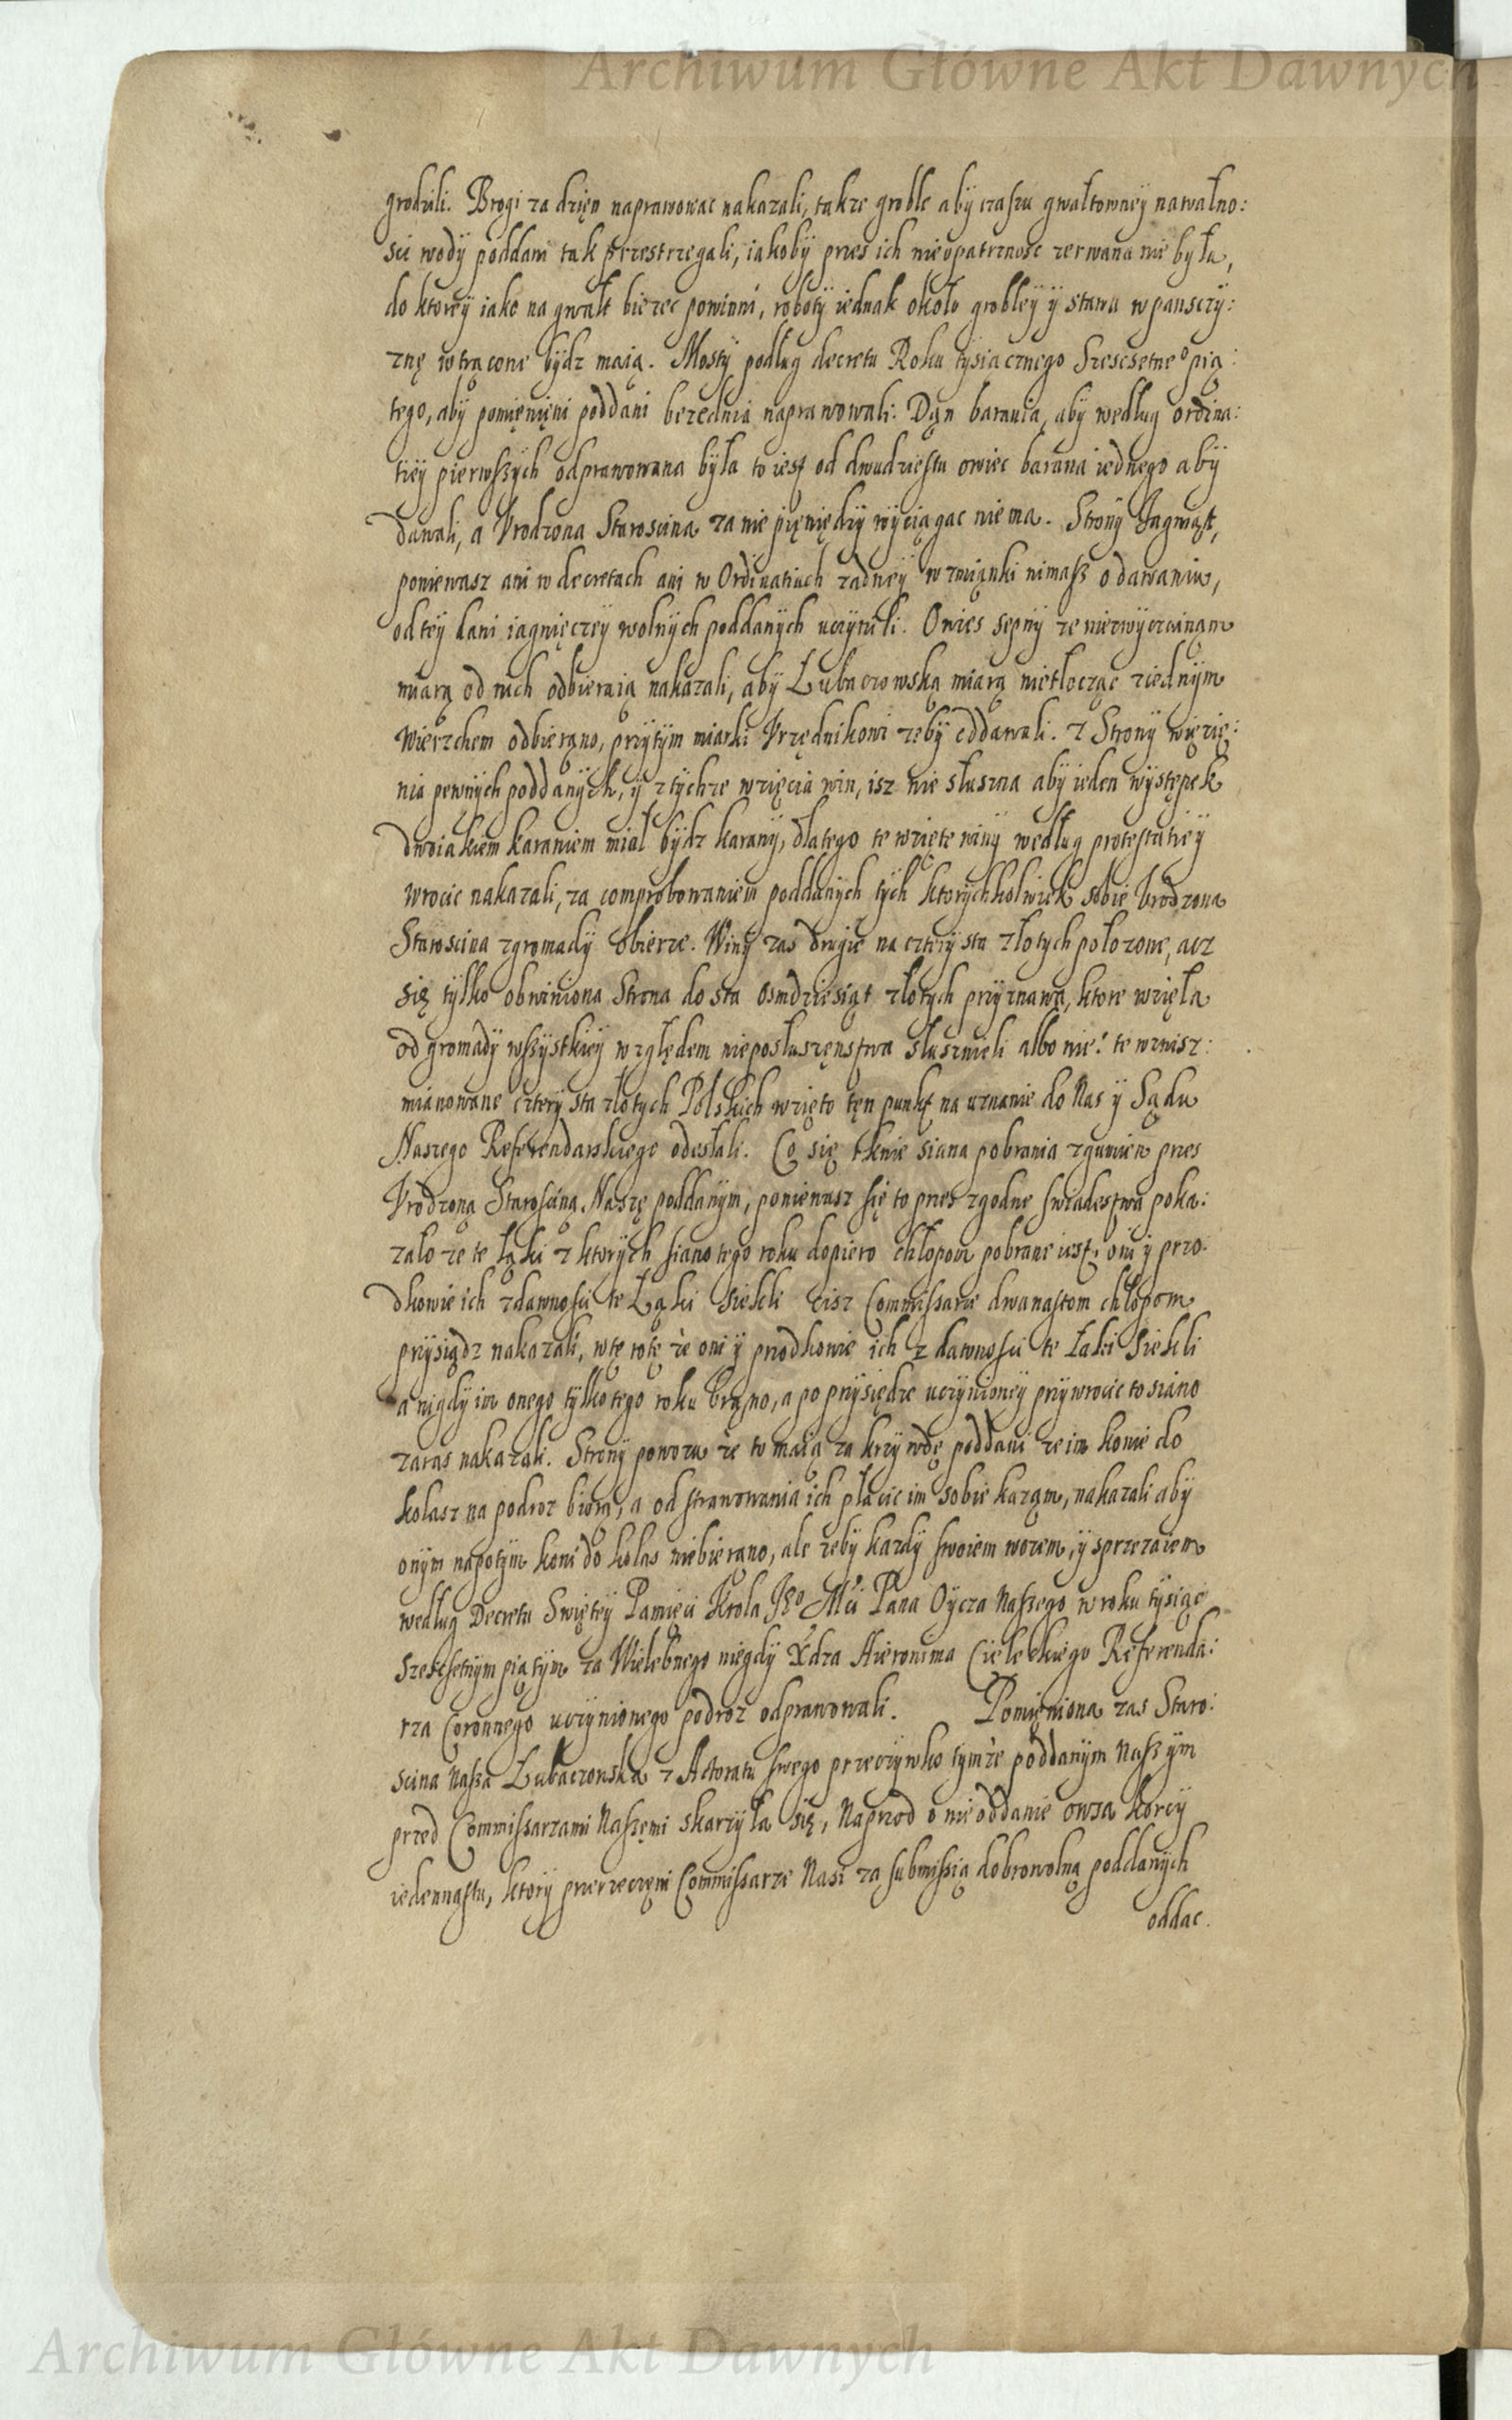 Archiwum Główne Akt Dawnych
grodzili. Brogi za dzięn naprawowac nakazali, takze groble aby czasu gwałtowney nawalno:
sci wody poddani tak przestrzegali, iakoby przes ich nieopatrznosc zerwana nie była,
do ktorey iako na gwałt biezec powinni, roboty iednak około grobley y stawu w panszczy:
znę wtrącone bydz maią. Mosty podług decretu Roku tysiacznego Szescsetneo pią:
tego, aby pomięnięni poddani bezednia naprawowali. Dąn barania, aby według ordina:
tiey pierwszych odprawowana była to iest od dwudziestu owiec barana iednego aby
dawali, a Vrodzona Staroscina za nie pięniędzy wyciągac niema. Strony Jagniąt,
poniewasz ani w decretach ani w Ordinatiach zadney wzmiąnki nimasz o dawaniu,
od tey dani iagnięczey wolnych poddanych uczynili. Owies sepny ze niezwyczainąm
miarą od nich odbieraią nakazali, aby Lubaczowską miarą nietłocząc ziednym
Wierzchem odbierąno, przytym miarki Vrzędnikowi zeby oddawali. Z Strony więzię:
nia pewnych poddanych, y ztychze wzięcia win, isz nie słuszna aby ieden występek
dwoiakiem karaniem miał bydz karany, dlatego te wzięte winy według protestatiey
wrocic nakazali, za comprobowaniem poddanych tych ktorychkolwiek sobie Vrodzona
Staroscina zgromady obierze. Winy zas drugie na cztery sta złotych połozone, acz
się tylko obwiniona Strona do sta osmdziesiąt złotych przyznawa, ktore wzięła
od gromady wszystkiey względem nieposłuszęnstwa słusznieli albo nie: te wzwisz:
mianowane cztery sta złotych Polskich wzięto tęn punkt na uznanie do Nas y Sądu
Naszego Referendarskiego odesłali. Co się tknie siana pobrania zgumien przes
Vrodzoną Staroscinę Naszę poddanym, poniewasz się to przes zgodne swiadestwa poka:
zało ze te łąki z ktorych siano tego roku dopiero chłopom pobrane iest, oni y przo:
dkowie ich zdawnosci te Łąki siekli cisz Commissarze dwanastom chłopom
przysiądz nakazali, w tę rotę ze oni y przodkowie ich z dawnosci te Łaki siekli
a nigdy im onego tylko tego roku brąno, a po przysiędze uczynioney przywrocic to siano
zaras nakazali. Strony powozu ze to maią za krzywdę poddani ze im konie do
kolasz na podroz biorą, a od strawowania ich płacic im sobie kaząm, nakazali aby
onym napotym koni do kolas niebierąno, ale zeby kazdy swoiem wozem, y sprzezaiem
według Decretu Swiętey Pamięci Krola Jeo Mci Pana Oycza Naszego w roku tysiąc
szescsetnym piątym za Wielebnego niegdy Xdza Hieronima Cieleckiego Referenda:
rza Coronnego uczynionego podroz odprawowali. Pomięniona zas Staro:
scina Nasza Lubaczowska z Actoratu swego przeczywko tymze poddanym Naszym
przed Commissarzami Naszęmi skarzyła się, Naprzod o nieoddanie owsa korcy
iedennastu, ktory przerzeczęni Commissarze Nasi za submissią dobrowolną poddanych
oddac.
Archiwum Główne Akt Dawnych